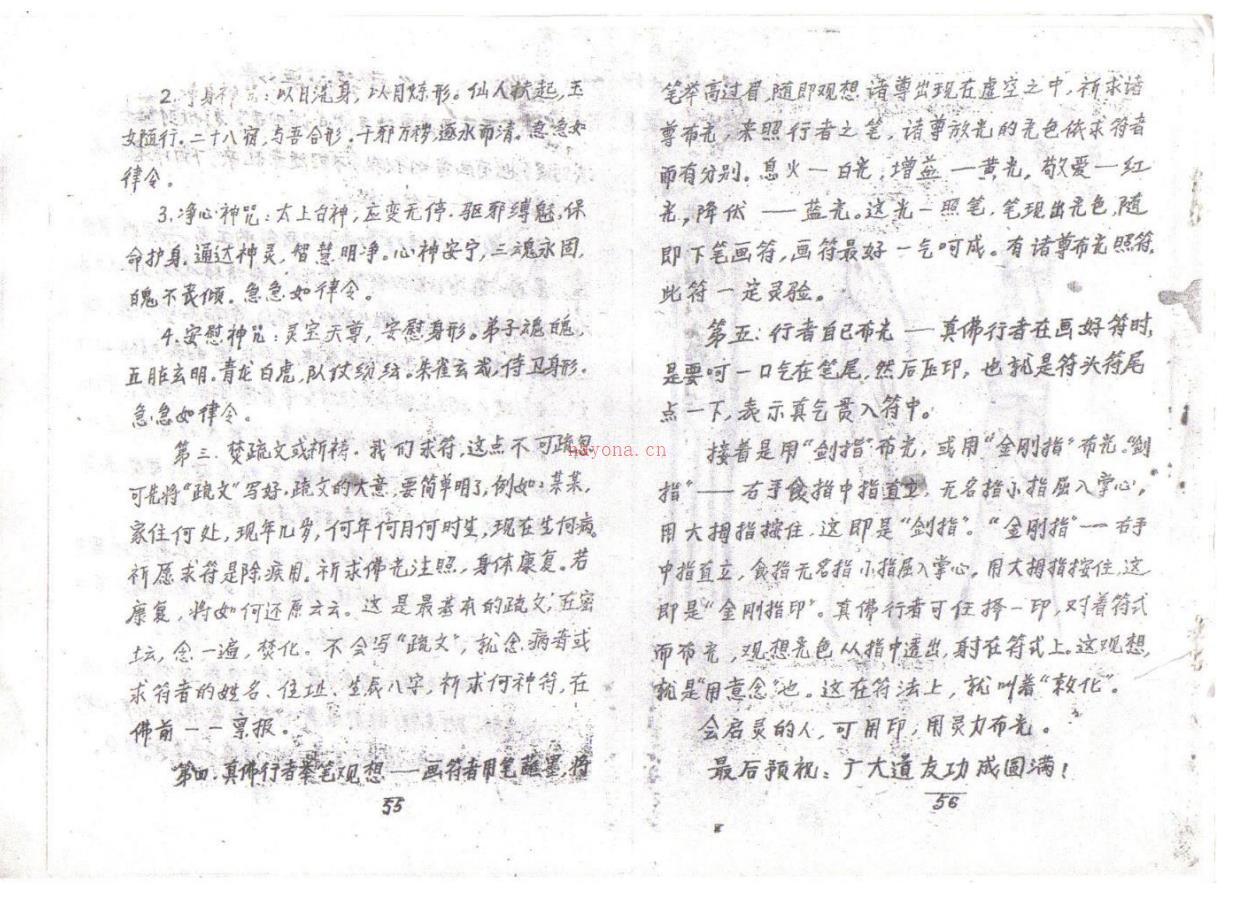 2. 净身神咒：以日洗身，以月炼形。仙人扶起，玉
女随行。二十八宿，与吾合形，千邪万秽，逐水而清。急急如
律令。
3. 净心神咒：太上台神，应变无停。驱邪缚魅，保
命护身。通达神灵，智慧明净。心神安宁，三魂永固，
魄不丧倾。急急如律令。
4. 安慰神咒：灵宝天尊，安慰身形。弟子魂魄，
五脏玄明。青龙白虎，队仗纷纭。朱雀玄武，侍卫身形。
急急如律令。
第三．焚疏文或祈祷．我们求符，这点不可疏忽
可先将“疏文”写好，疏文的大意，要简单明了，例如：某某，
家住何处，现年几岁，何年何月何时生，现在生何病。
祈愿求符是除疾用。祈求佛光注照，身体康复。若
康复，将如何还原云云。这是最基本的疏文，在密
坛，念一遍，焚化。不会写“疏文”，就念病者或
求符者的姓名、住址、生辰八字，祈求何神符，在
佛前一一禀报。
第四．真佛行者举笔观想——画符者用笔蘸墨，将
55
笔举高过眉，随即观想诸尊出现在虚空之中，祈求诸
尊布光，来照行者之笔，诸尊放光的光色依求符者
而有分别。息火—白光，增益—黄光，敬爱—红
光，降伏——蓝光。这光一照笔，笔现出光色，随
即下笔画符，画符最好一气呵成。有诸尊布光照符，
此符一定灵验。
第五：行者自己布光——真佛行者在画好符时，
是要呵一口气在笔尾，然后压印，也就是符头符尾
点一下，表示真气贯入符中。
接着是用“剑指”布光，或用“金刚指”布光。“剑
指”——右手食指中指直立，无名指小指屈入掌心，
用大拇指按住，这即是“剑指”。“金刚指”——右手
中指直立，食指无名指小指屈入掌心，用大拇指按住，这
即是“金刚指印”。真佛行者可任择一印，对着符式
而布光，观想光色从指中透出，射在符式上。这观想，
就是“用意念”也。这在符法上，就叫着“敕化”。
会启灵的人，可用印，用灵力布光。
最后预祝：广大道友功成圆满！
56
nayona.cn